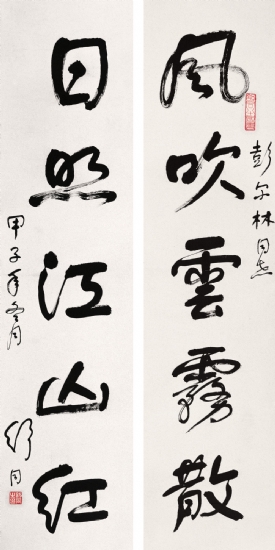 风吹雲霧散
彭尔林同志
日照江山红
甲子年冬月
舒同